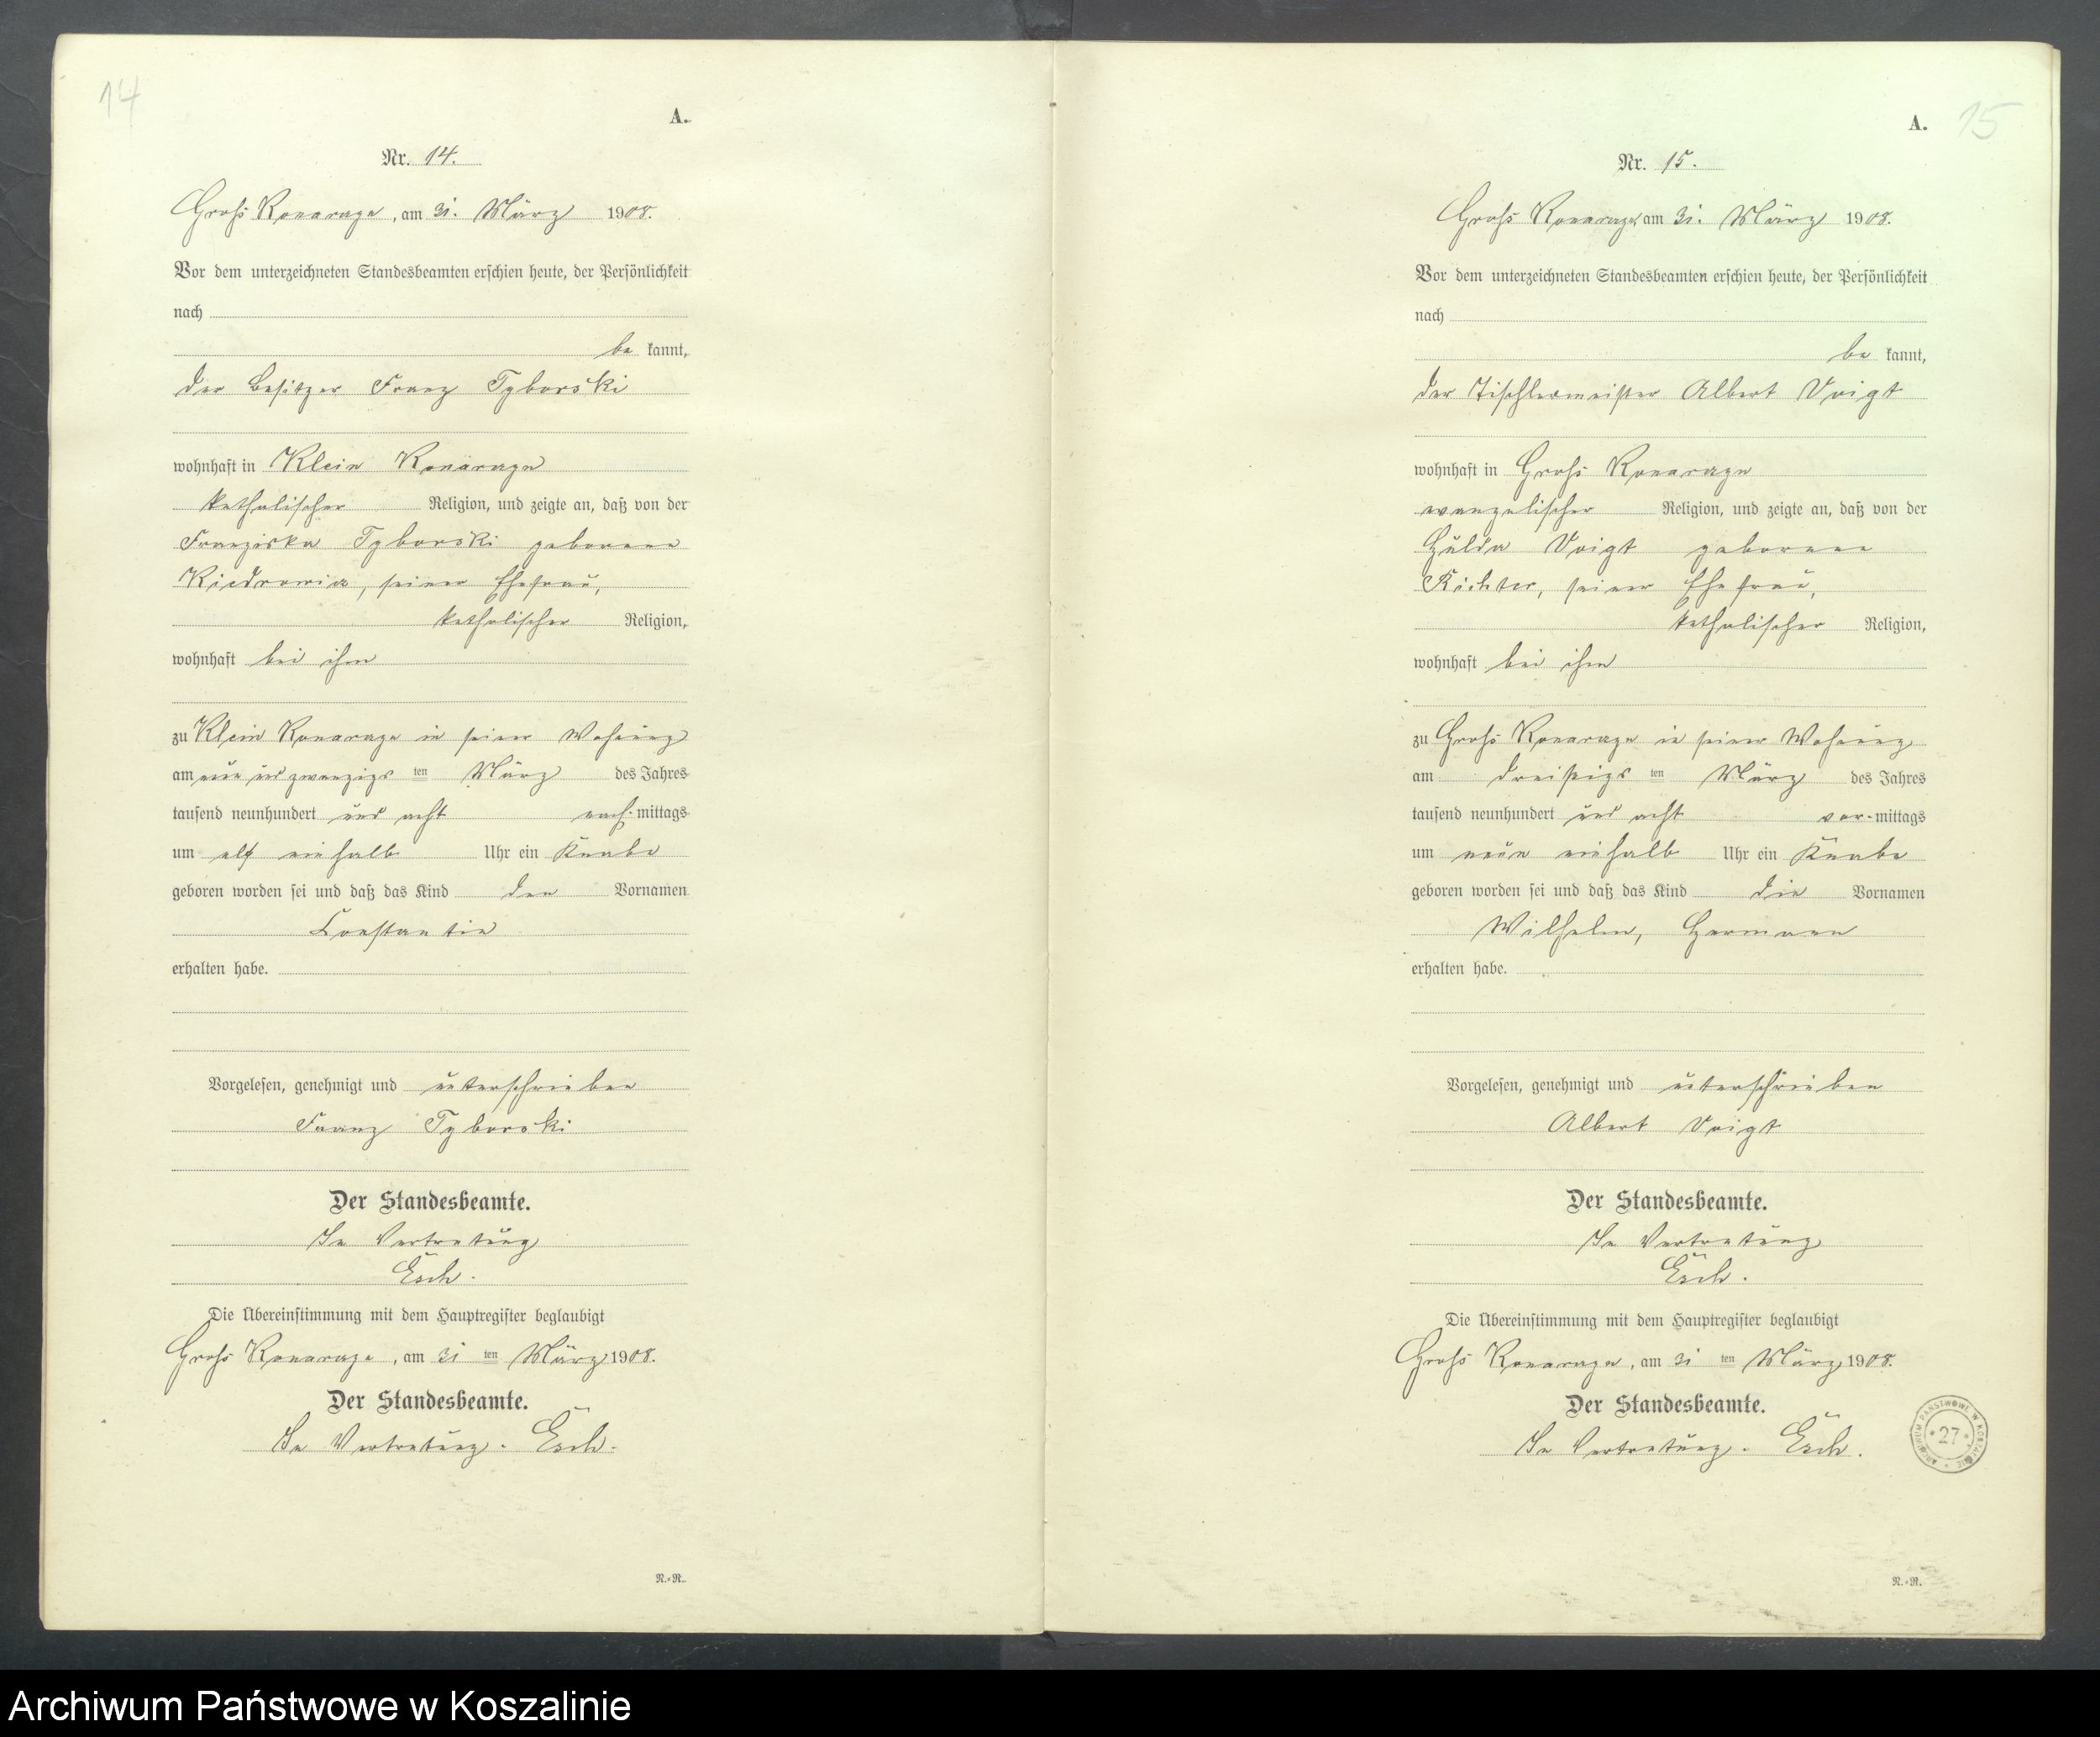 14
A.
Nr. 14.
Groß Konarzyn, am 31. März 1908.
Vor dem unterzeichneten Standesbeamten erschien heute, der Persönlichkeit
nach
be kannt,
der Besitzer Franz Tyborski
wohnhaft in Klein Konarzyn
katholischer Religion, und zeigte an, daß von der
Franziska Tyborski geborene
seiner Ehefrau,
katholischer Religion,
wohnhaft bei ihm
zu Klein Konarzyn in seiner Wohnung
am neun und zwanzigs ten März des Jahres
tausend neunhundert und acht nach-mittags
um elf einhalb Uhr ein Knabe
geboren worden sei und daß das Kind den Vornamen
Constantin
erhalten habe.
Vorgelesen, genehmigt und unterschrieben
Franz Tyborski
Der Standesbeamte.
In Vertretung
Esch.
Die Übereinstimmung mit dem Hauptregister beglaubigt
Groß Konarzyn, am 31 ten März 1908.
Der Standesbeamte.
In Vertretung. Esch.
R.=R.
15
A.
Nr. 15.
Groß Konarzyn, am 31. März 1908.
Vor dem unterzeichneten Standesbeamten erschien heute, der Persönlichkeit
nach
be kannt,
der Tischlermeister Albert Voigt
wohnhaft in Groß Konarzyn
evangelischer Religion, und zeigte an, daß von der
Hulda Voigt geborene
Richter, seiner Ehefrau,
katholischer Religion,
wohnhaft bei ihm
zu Groß Konarzyn in seiner Wohnung
am dreißigs ten März des Jahres
tausend neunhundert und acht vor-mittags
um neun einhalb Uhr ein Knabe
geboren worden sei und daß das Kind die Vornamen
Wilhelm, Hermann
erhalten habe.
Vorgelesen, genehmigt und unterschrieben
Albert Voigt
Der Standesbeamte.
In Vertretung
Esch.
Die Übereinstimmung mit dem Hauptregister beglaubigt
Groß Konarzyn, am 31 ten März 1908.
Der Standesbeamte.
In Vertretung. Esch.
ARCHIWUM PAŃSTWOWE W KOSZALINIE
* 27 *
R.=R.
Archiwum Państwowe w Koszalinie